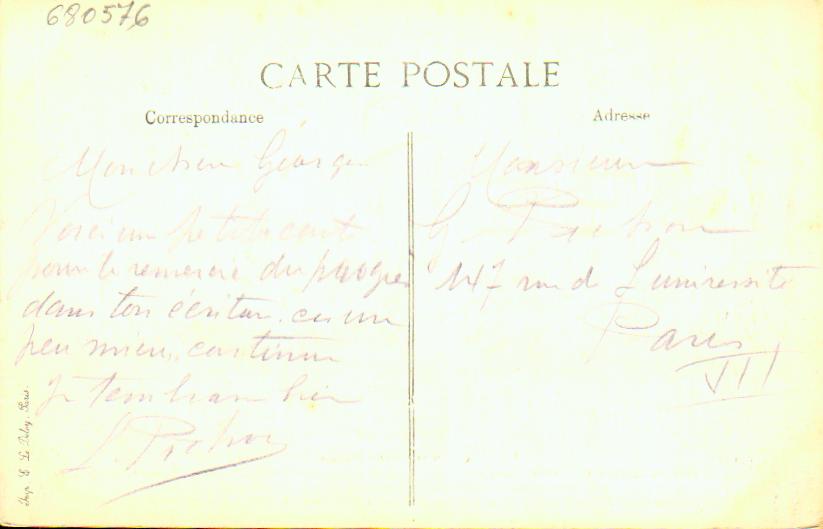 680576
CARTE POSTALE
Correspondance
Adresse
Mon cher Georges
Voici une petite carte
pour te remercie du progrès
dans ton écriture. ces un
peu mieux. continue
Je t'embrasse bien
L.
Monsieur
G.
147 rue de L'université
Paris
VII
Imp. E. Le Deley, Paris.